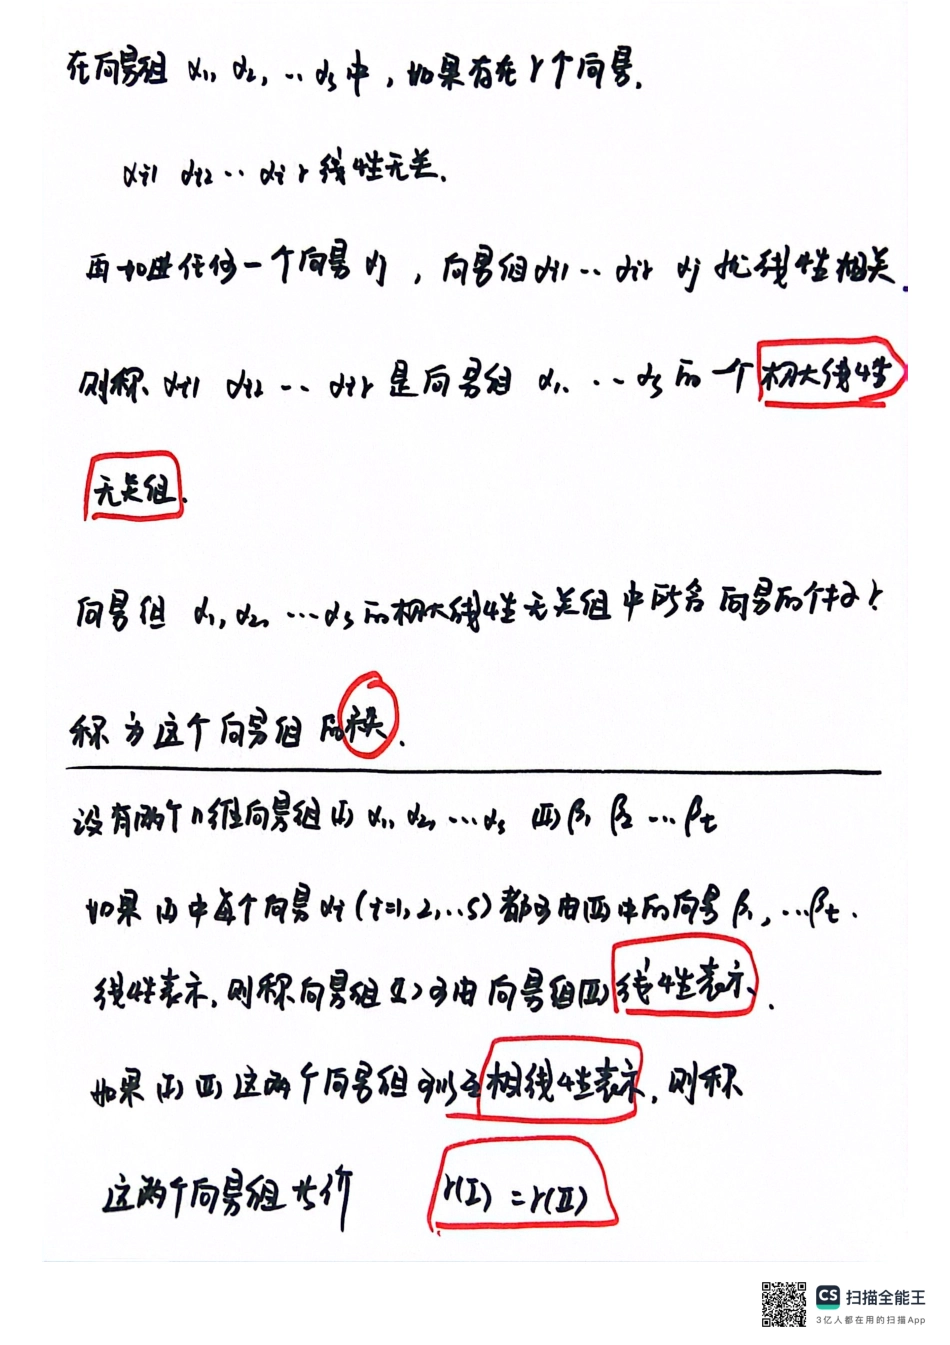 在向量组 α₁, α₂, ‥ αs中，如果存在 r 个向量.
αi1 αi2 ‥ αir 线性无关.
再加进任何一个向量 αj ，向量组 αi1 ‥ αir αj 就线性相关.
则称 αi1 αi2 ‥ αir 是向量组 α₁, ‥ αs 的一个极大线性
无关组.
向量组 α₁, α₂, … αs 的极大线性无关组中所含向量的个数 r
称为这个向量组的秩.
设有两个n维向量组(I) α₁, α₂, … αs (II) β₁ β₂ … βt
如果(I)中每个向量 αi (i=1, 2, ‥ s) 都可由(II)中的向量 β₁, … βt.
线性表示, 则称向量组(I)可由向量组(II)线性表示.
如果(I)(II)这两个向量组可以互相线性表示, 则称
这两个向量组等价 r(I) = r(II)
CS 扫描全能王
3亿人都在用的扫描App